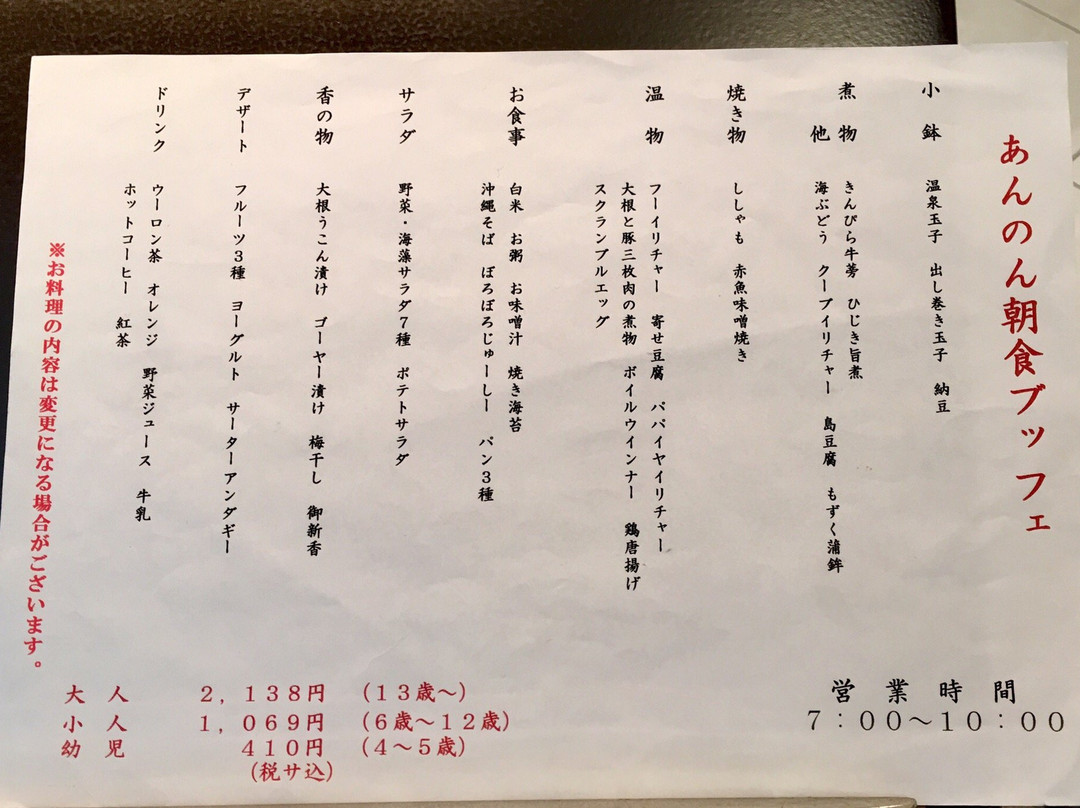 あんのん朝食ブッフェ
小鉢 温泉玉子 出し巻き玉子 納豆
煮物 きんぴら牛蒡 ひじき旨煮
他 海ぶどう クーブイリチャー 島豆腐 もずく蒲鉾
焼き物 ししゃも 赤魚味噌焼き
温物 フーイリチャー 寄せ豆腐 パパイヤイリチャー
大根と豚三枚肉の煮物 ボイルウインナー 鶏唐揚げ
スクランブルエッグ
お食事 白米 お粥 お味噌汁 焼き海苔
沖縄そば ぼろぼろじゅーしー パン3種
サラダ 野菜・海藻サラダ7種 ポテトサラダ
香の物 大根うこん漬け ゴーヤー漬け 梅干し 御新香
デザート フルーツ3種 ヨーグルト サーターアンダギー
ドリンク ウーロン茶 オレンジ 野菜ジュース 牛乳
ホットコーヒー 紅茶
※お料理の内容は変更になる場合がございます。
大人 2,138円 (13歳~)
小人 1,069円 (6歳~12歳)
幼児 410円 (4~5歳)
(税サ込)
営業時間
7:00~10:00